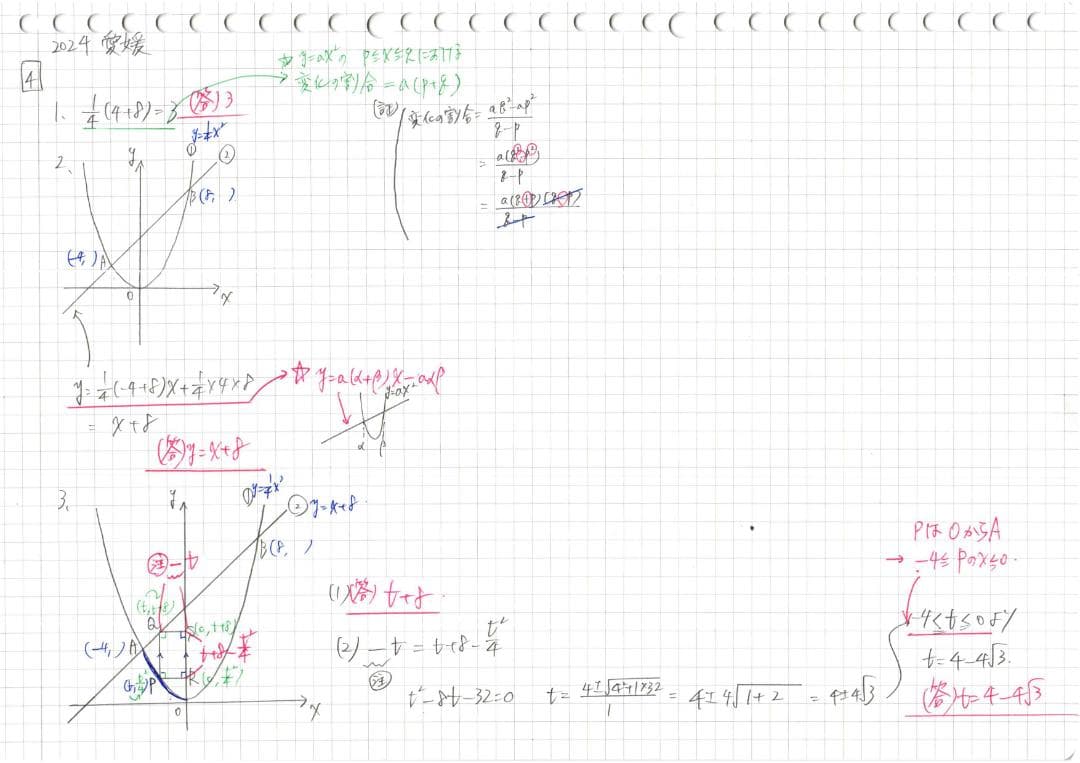 2024 愛媛
4
☆ y=ax² の p≦x≦q における
変化の割合 = a(p+q)
1. 1/4(4+8)=3 (答) 3
(証) 変化の割合 = (aq²-ap²)/(q-p)
= a(q²-p²)/(q-p)
= a(q+p)(q-p)/(q-p)
2.
y=1/4x²
① ②
y
B(8, )
(-4, ) A
O x
y=1/4(-4+8)x+1/4×4×8
= x+8
☆ y=a(α+β)x-aαβ
y=ax²
α β
(答) y=x+8
3.
y
① y=1/4x²
② y=x+8
B(8, )
注 -t
(t, t+8)
Q
S(0, t+8)
t+8-t²/4
(-4, ) A
(t, t²/4) P
R(0, t²/4)
O x
(1) (答) t+8
(2) -t = t+8-t²/4
注
t²-8t-32=0 t=(4±√(4²+1×32))/1 = 4±4√(1+2) = 4±4√3
PはOからA
→ -4≦Pのx≦0.
-4≦t≦0より
t=4-4√3.
(答) t=4-4√3